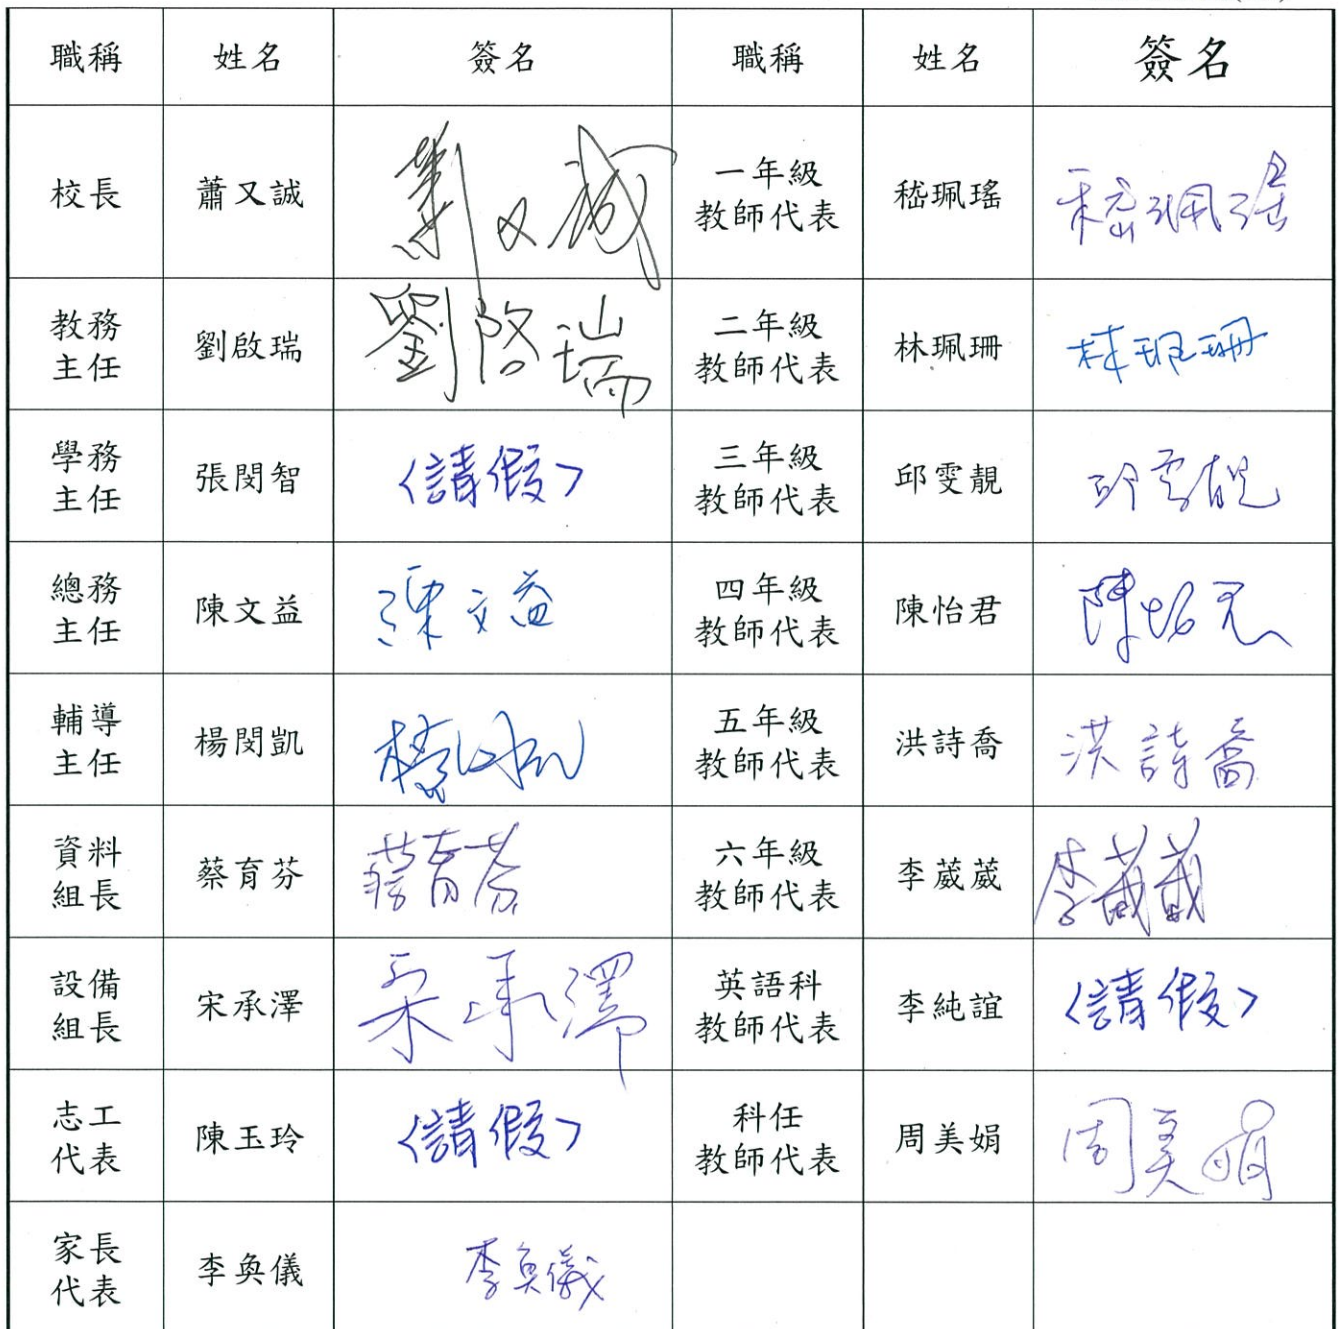 職稱 姓名 簽名 職稱 姓名 簽名
校長 蕭又誠 蕭又誠 一年級教師代表 嵇珮瑤 嵇珮瑤
教務主任 劉啟瑞 劉啓瑞 二年級教師代表 林珮珊 林珮珊
學務主任 張閔智 〈請假〉 三年級教師代表 邱雯靚 邱雯靚
總務主任 陳文益 陳文益 四年級教師代表 陳怡君 陳怡君
輔導主任 楊閔凱 楊閔凱 五年級教師代表 洪詩喬 洪詩喬
資料組長 蔡育芬 蔡育芬 六年級教師代表 李葳葳 李葳葳
設備組長 宋承澤 宋承澤 英語科教師代表 李純誼 〈請假〉
志工代表 陳玉玲 〈請假〉 科任教師代表 周美娟 周美娟
家長代表 李奐儀 李奐儀